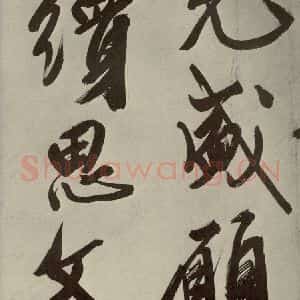 盛願
續思文
Shufawang.CN